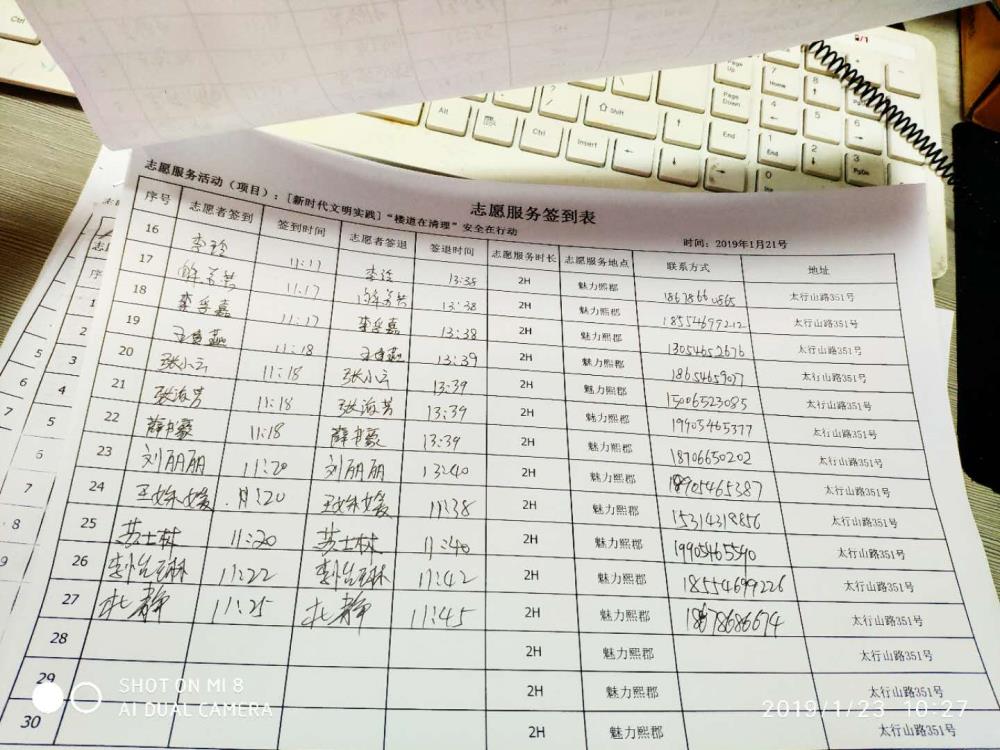 志愿服务签到表
志愿服务活动（项目）：[新时代文明实践]"楼道在清理"安全在行动
时间：2019年1月21号
序号 志愿者签到 签到时间 志愿者签退 签退时间 志愿服务时长 志愿服务地点 联系方式 地址
16 11:17 13:38 2H 魅力熙郡 太行山路351号
17 11:17 13:38 2H 魅力熙郡 18554699212 太行山路351号
18 11:17 13:38 2H 魅力熙郡 13054652676 太行山路351号
19 11:18 13:39 2H 魅力熙郡 18654659077 太行山路351号
20 张小云 11:18 张小云 13:39 2H 魅力熙郡 15006523085 太行山路351号
21 张海芳 11:18 张海芳 13:39 2H 魅力熙郡 19905465377 太行山路351号
22 薛书豪 11:18 薛书豪 13:39 2H 魅力熙郡 18706650202 太行山路351号
23 刘丽丽 11:20 刘丽丽 13:40 2H 魅力熙郡 18905465387 太行山路351号
24 11:20 11:38 2H 魅力熙郡 15314319856 太行山路351号
25 苏士林 11:20 苏士林 11:40 2H 魅力熙郡 19905465590 太行山路351号
26 11:22 11:42 2H 魅力熙郡 18554699226 太行山路351号
27 杜静 11:25 杜静 11:45 2H 魅力熙郡 18678686674 太行山路351号
28 2H 魅力熙郡 太行山路351号
29 2H 魅力熙郡 太行山路351号
30 2H 魅力熙郡 太行山路351号
SHOT ON MI 8
AI DUAL CAMERA
2019/1/23 10:27